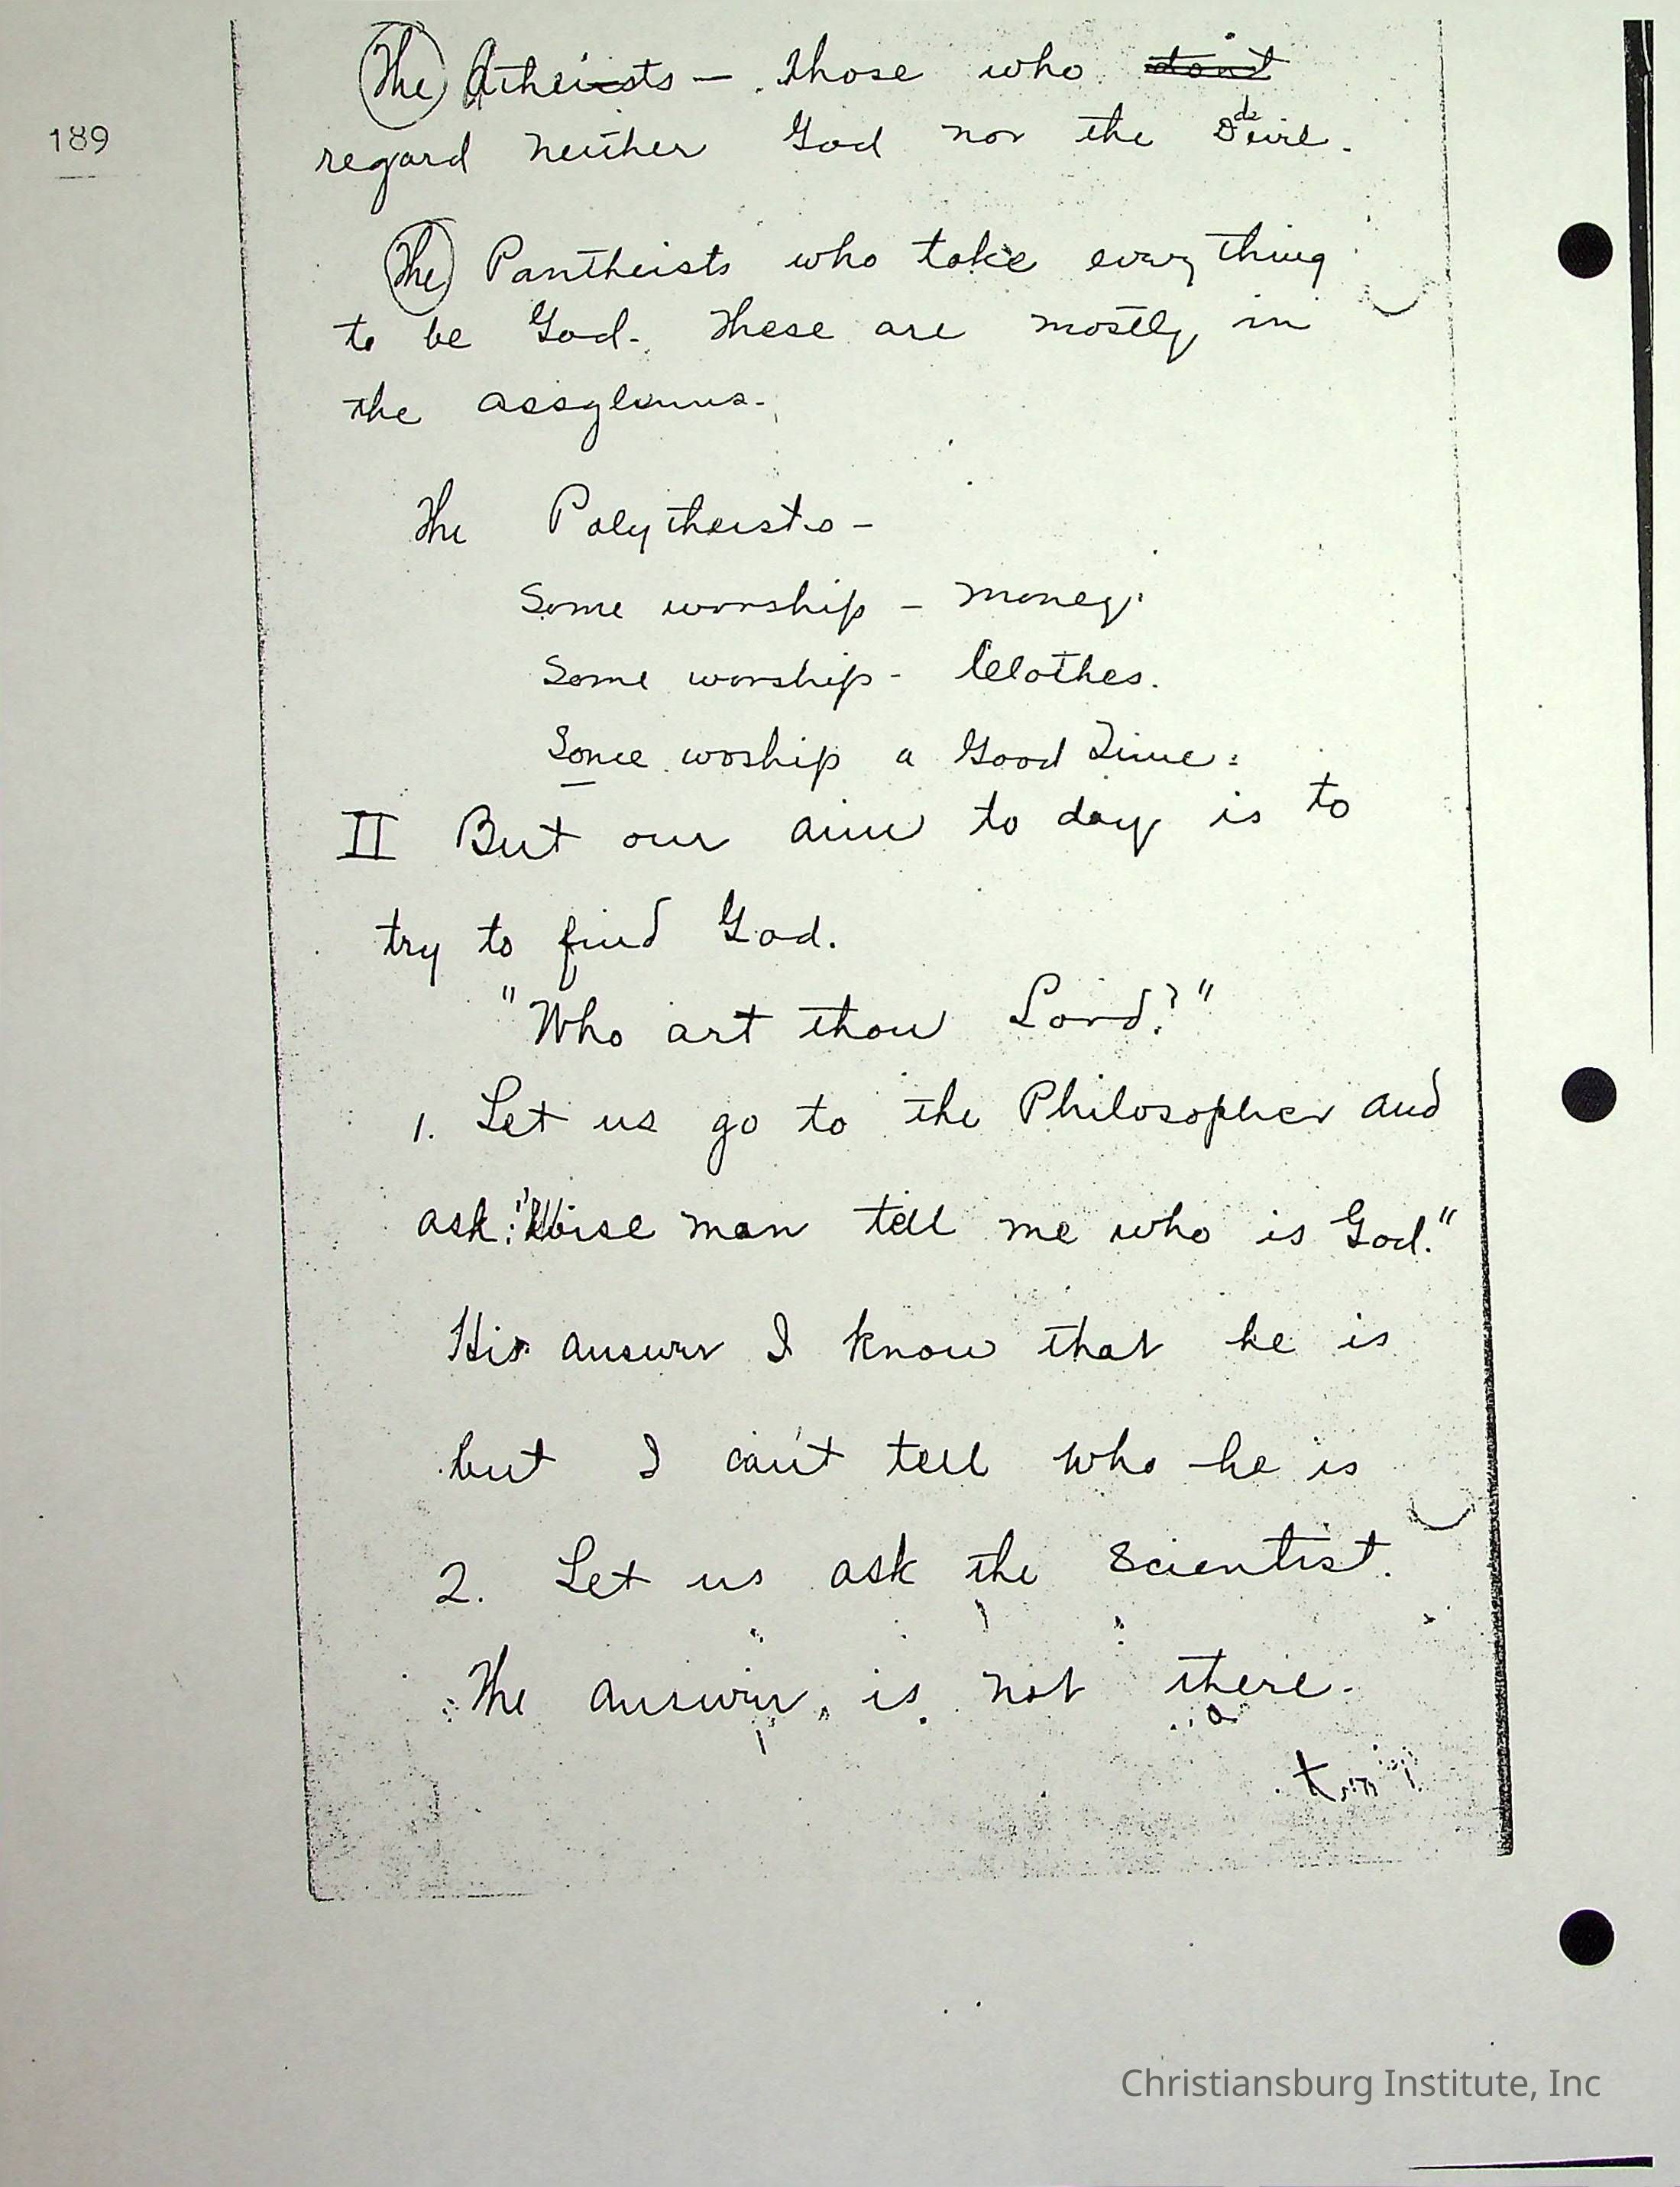 The Atheists — those who dont
189
regard neither God nor the Devil.
The Pantheists who take every thing
to be God. These are mostly in
the assylums.
The Polytheists -
Some worship - money.
Some worship - Clothes.
Some worship a Good Time.
II But our aim to day is to
try to find God.
"Who art thou Lord?"
1. Let us go to the Philosopher and
ask: "Wise man tell me who is God."
His answer I know that he is
but I can't tell who he is
2. Let us ask the Scientist.
The answer is not there.
Christiansburg Institute, Inc